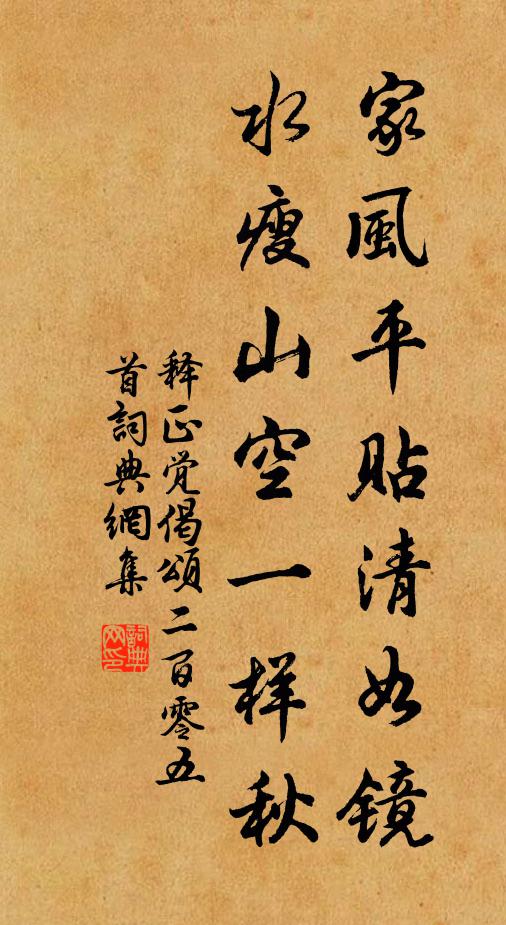 家風平贴清如镜
水瘦山空一样秋
释正觉偈頌二百零五
首詞典網集
詞典
网印